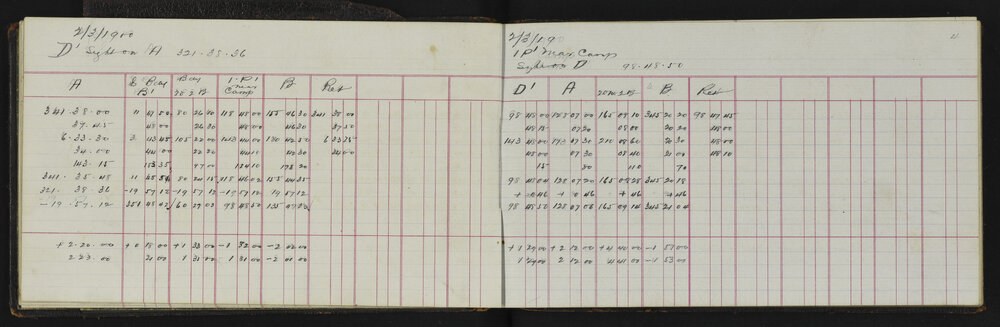 2/3/1900
D' Sight on A 321.38.36
A £ Bay B' Bay B 1.P.1 Max Camp B Ret
341.38.00 11 47 50 80 26 40 118 48 00 155 46 30 341 38 00
37.45 48 00 26 30 48 00 46 30 37 50
6.33.30 2 43 45 105 22 00 143 44 00 180 42 50 6 33 25
34.00 44 00 22 20 44 10 42 30 34 00
143.15 183 35 97 00 184 10 178 20
341.35.48 11 45 54 80 24 15 118 46 02 155 44 35
321.38.36 -19 57 12 -19 57 12 -19 57 12 19 57 12
-19.57.12 351 48 42 60 27 03 98 48 50 135 47 23
+2.20.00 +0 18 00 +1 33 00 -1 32 00 -2 02 00
2 23.00 21 00 1 31 00 1 31 00 -2 01 00
2/3/190
1 P' Max Camp
Sight on D 98.48.50
D' A B Ret
98 48 00 128 07 00 165 08 10 345 20 20 98 47 45
48 15 07 30 08 00 20 20 48 00
143 48 00 173 07 30 210 08 60 20 30 48 00
48 00 07 30 08 40 21 00 48 10
15 30 110 70
98 48 04 128 07 20 165 08 28 345 20 18
+0 46 + 46 + 46 + 46
98 48 50 128 08 06 165 09 14 345 21 04
+1 29 00 +2 12 00 +4 40 00 -1 57 00
1 29 00 2 12 00 4 41 00 -1 53 00